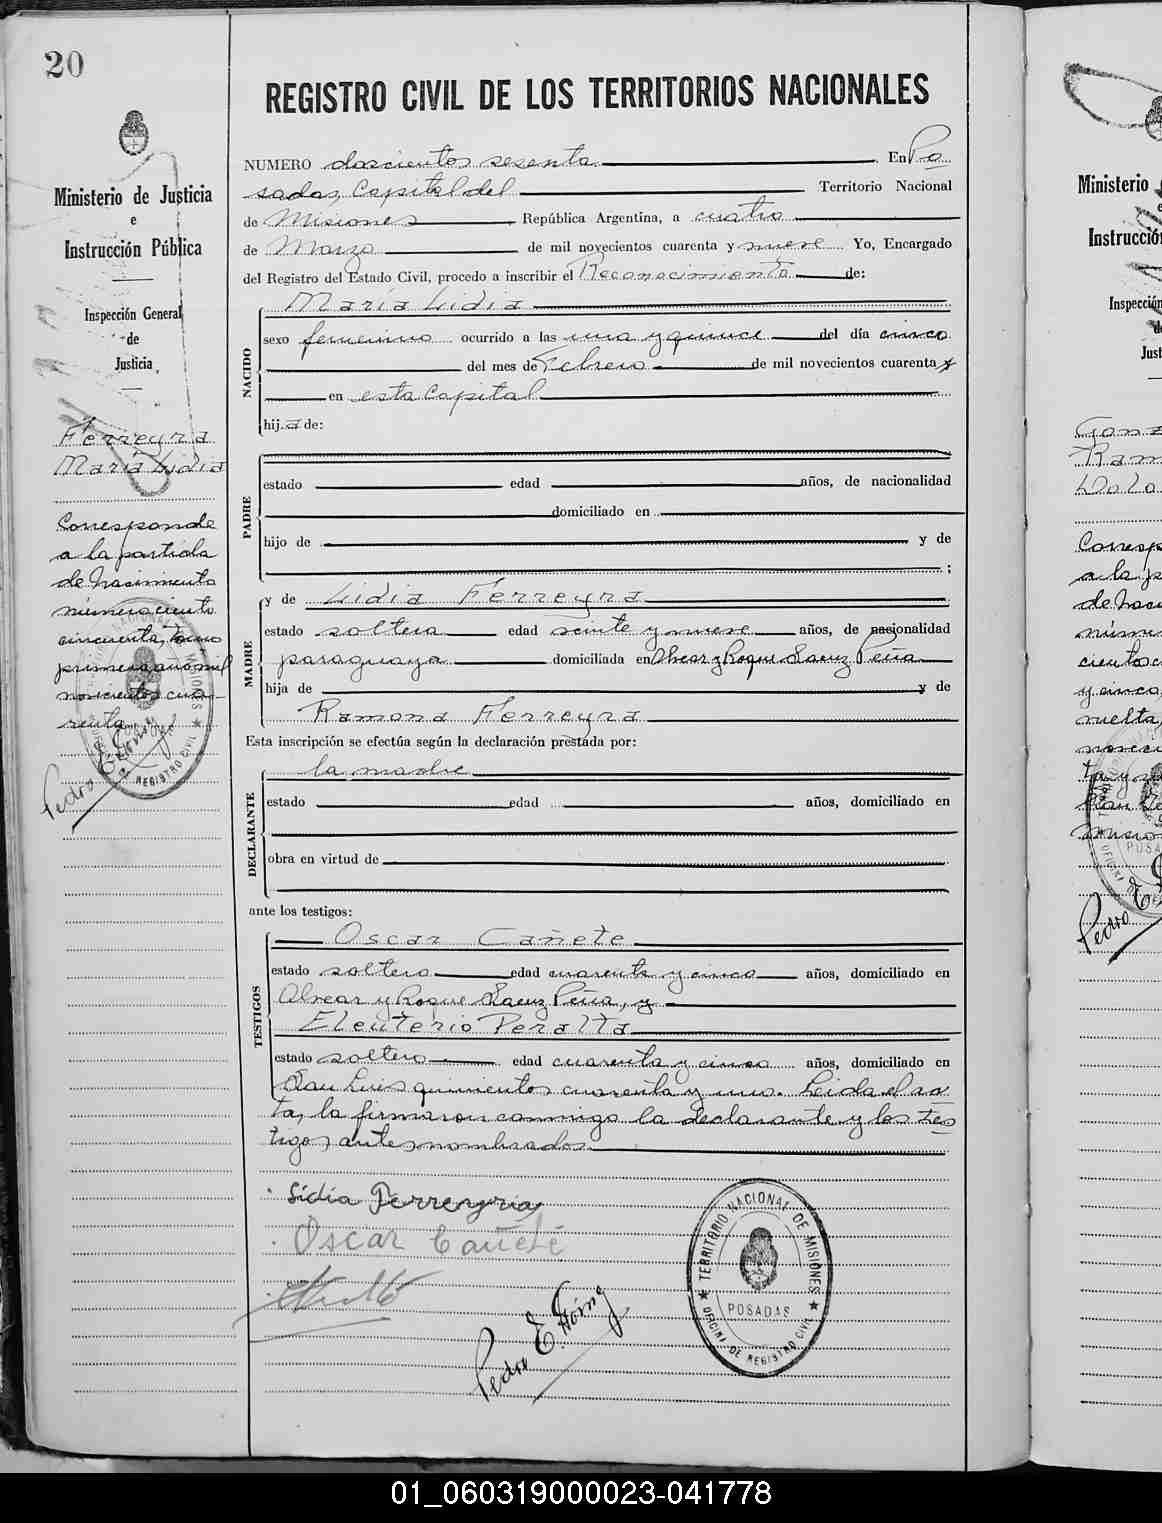 20
Ministerio de Justicia
e
Instrucción Pública
Inspección General
de
Justicia
Ferreyra
María Lidia
Corresponde
a la partida
de nacimiento
número ciento
cincuenta, tomo
primero año mil
novecientos cua
renta
Pedro E. Hörng
REGISTRO CIVIL DE LOS TERRITORIOS NACIONALES
NUMERO doscientos sesenta En Po
sadas, Capital del Territorio Nacional
de Misiones República Argentina, a cuatro
de Marzo de mil novecientos cuarenta y nueve Yo, Encargado
del Registro del Estado Civil, procedo a inscribir el Reconocimiento de:
María Lidia
NACIDO
sexo femenino ocurrido a las una y quince del día cinco
del mes de Febrero de mil novecientos cuarenta y
en esta Capital
hij a de:
PADRE
estado edad años, de nacionalidad
domiciliado en
hijo de y de
;
MADRE
y de Lidia Ferreyra
estado soltera edad veinte y nueve años, de nacionalidad
paraguaya domiciliada en Alvear y Roque Saenz Peña
hija de y de
Ramona Ferreyra
Esta inscripción se efectúa según la declaración prestada por:
la madre
DECLARANTE
estado edad años, domiciliado en
obra en virtud de
ante los testigos:
Oscar Cañete
TESTIGOS
estado soltero edad cuarenta y cinco años, domiciliado en
Alvear y Roque Saenz Peña, y
Eleuterio Peralta
estado soltero edad cuarenta y cinco años, domiciliado en
San Luis quinientos cuarenta y uno. Leida el ac
ta, la firmaron conmigo la declarante y los tes
tigos antes nombrados.
Lidia Ferreyria
Oscar Cañete
Pedro E. Hörng
TERRITORIO NACIONAL DE MISIONES
POSADAS
OFICINA DE REGISTRO CIVIL
Ministerio
Instrucción
Gonz
Ram
01_060319000023-041778